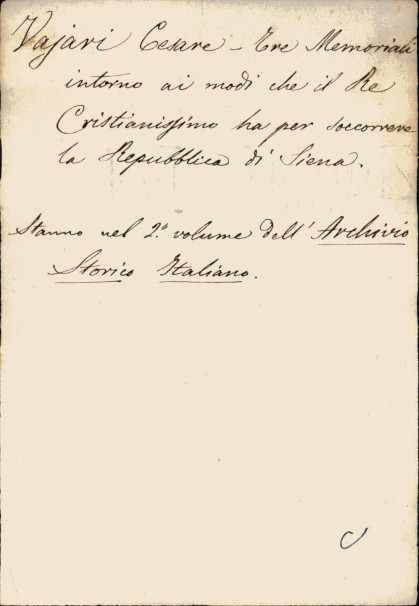 Vajari Cesare - Tre Memoriali
intorno ai modi che il Re
Cristianissimo ha per soccorrere
la Repubblica di Siena.
Stanno nel 2.° volume dell' Archivio
Storico Italiano.